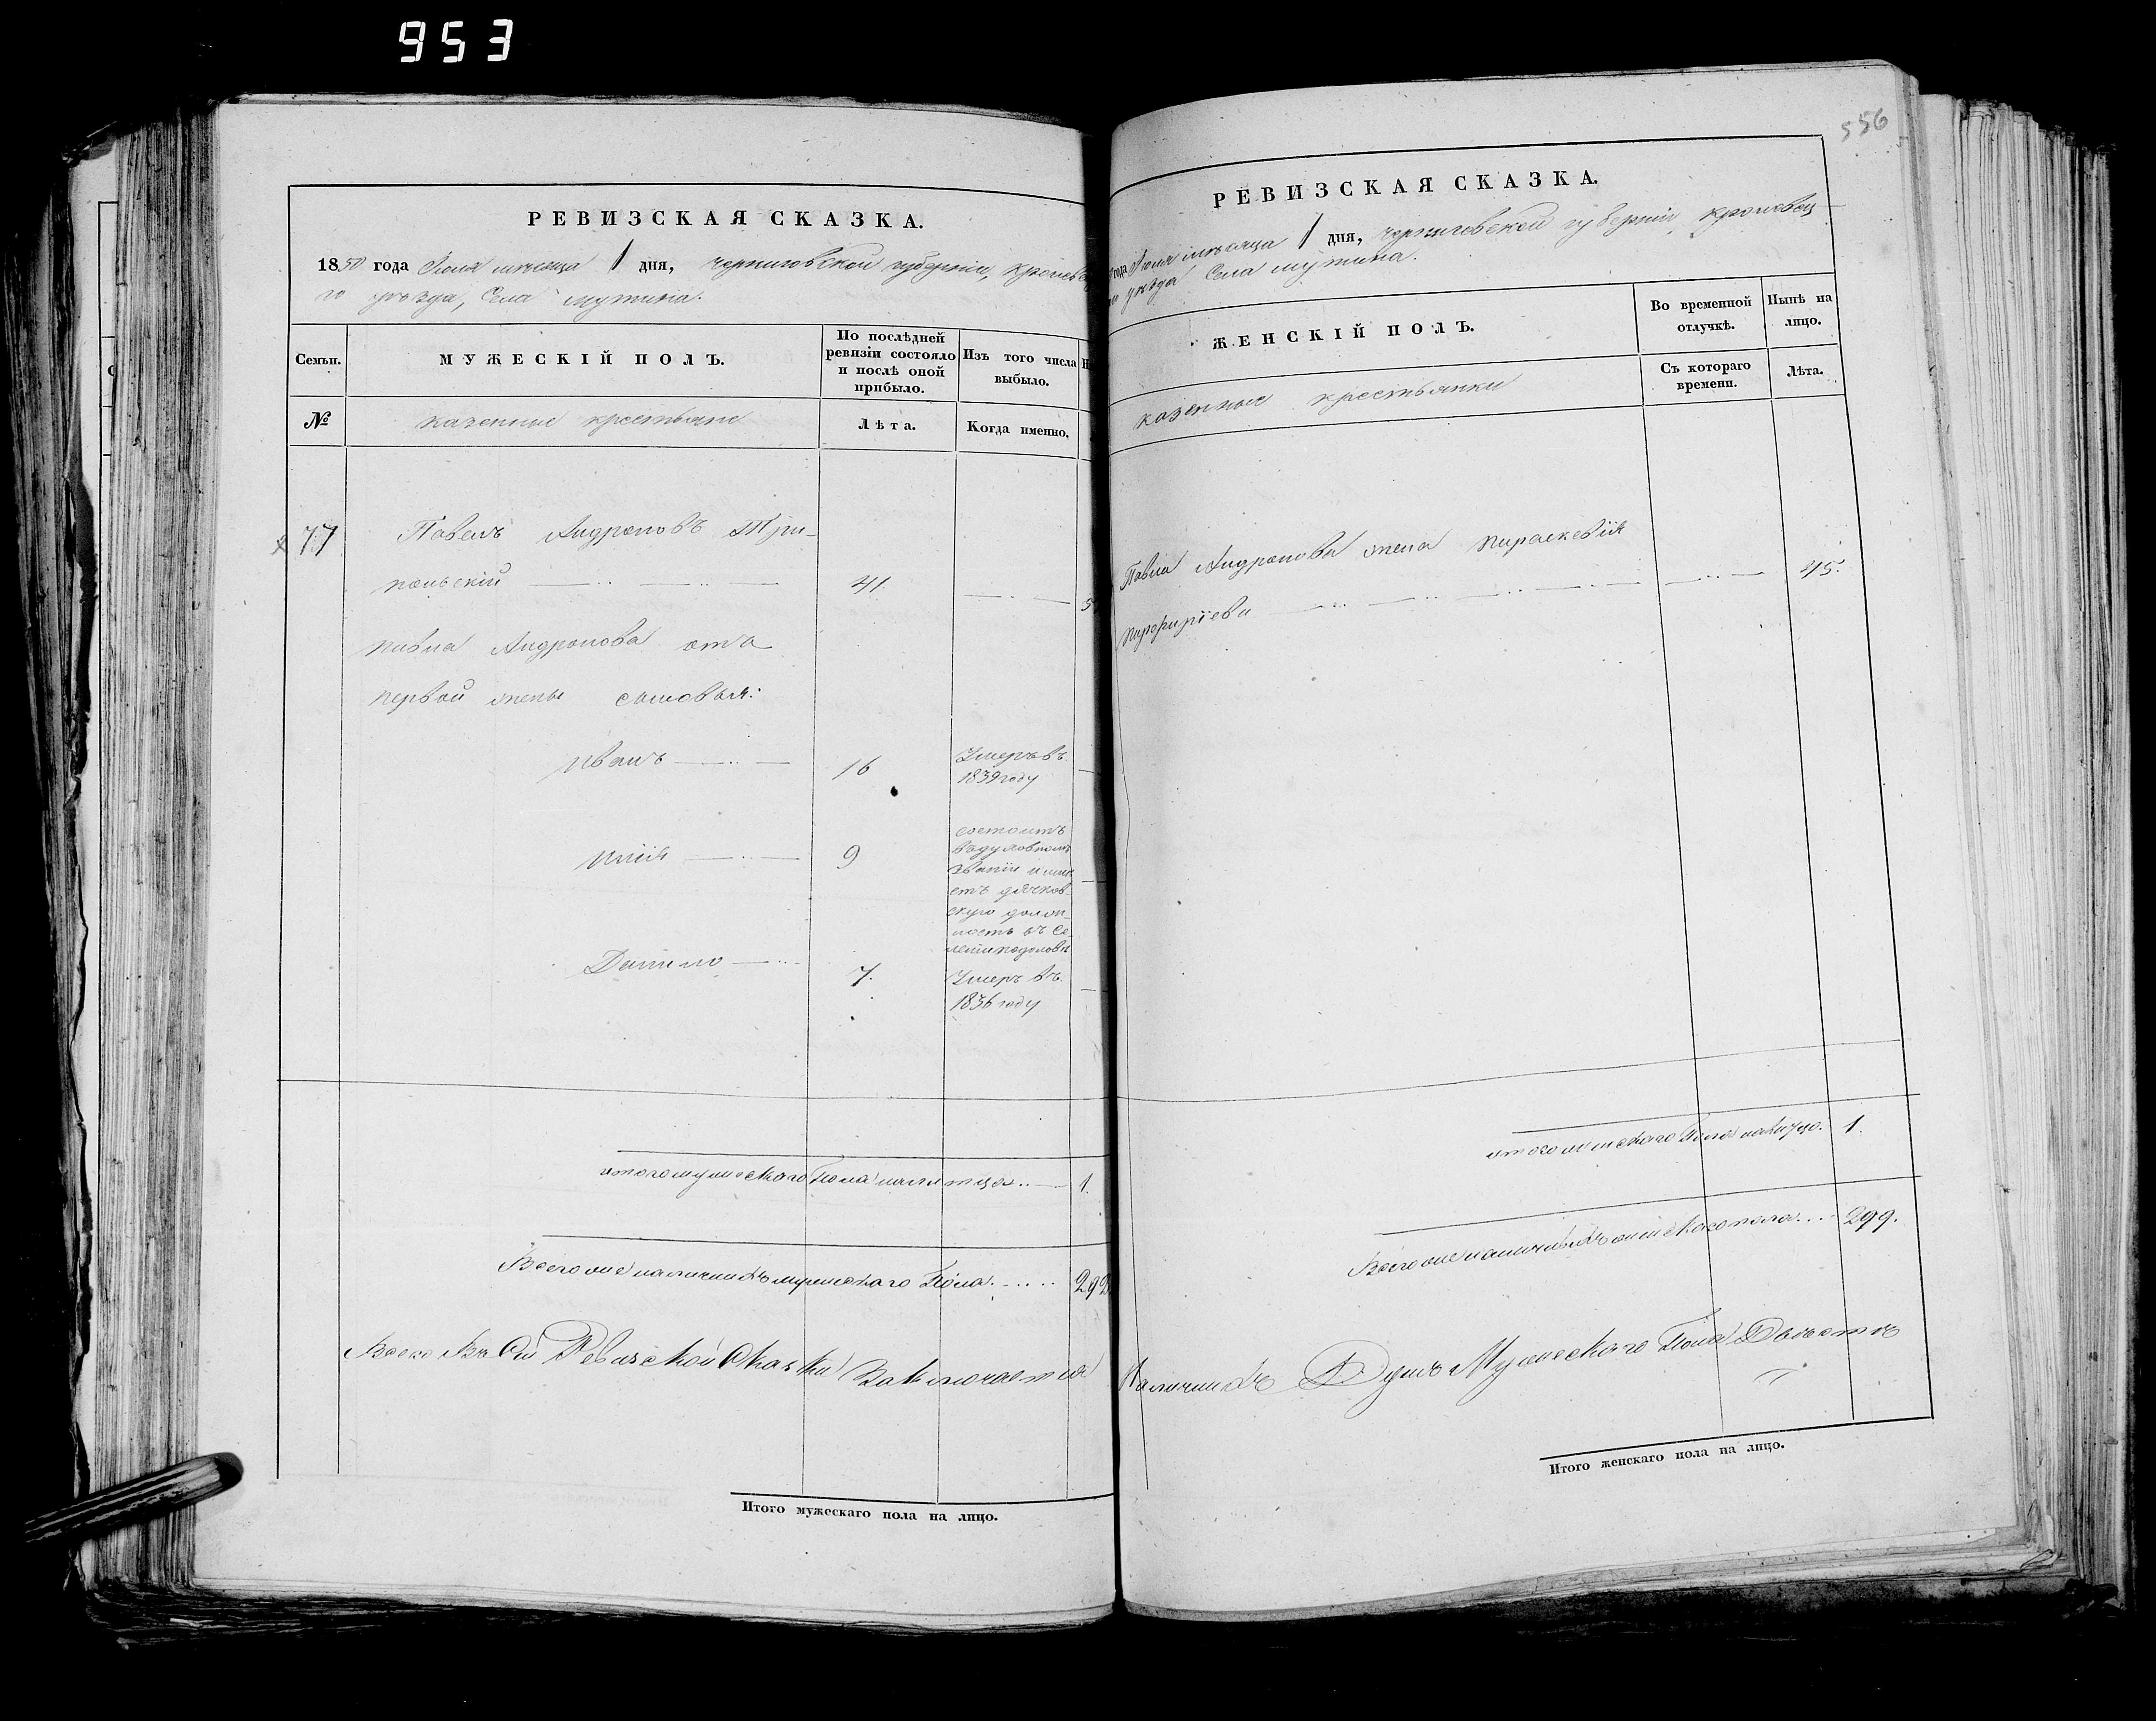 953
РЕВИЗСКАЯ СКАЗКА.
1850 года Іюля мѣсяца 1 дня, черниговской губерніи, кролевец
го уѣзда, Села мутина.
Семьи.
МУЖЕСКІЙ ПОЛЪ.
По послѣдней
ревизіи состояло
и послѣ оной
прибыло.
Изъ того числа
выбыло.
№
казенные крестьяне
Лѣта.
Когда именно.
77
Павелъ Андроновъ Три-
польскій
41.
павла Андронова отъ
первой жены сыновья:
Иванъ
16
Умеръ въ
1839 году
Илія
9
состоитъ
въ духовномъ
званіи и имѣ
етъ дячков-
скую долж-
ность въ Се-
Данило
7.
Умеръ въ
1836 году
итого мужескаго Пола на лица
1.
Всего же наличныхъ мужескаго Пола
292
Всего Въ Сей Ревизской Сказки Заключается
Итого мужескаго пола на лицо.
556
РЕВИЗСКАЯ СКАЗКА.
года Іюля мѣсяца 1 дня, черниговской губерніи, кролевец-
го уѣзда Села мутина.
ЖЕНСКІЙ ПОЛЪ.
Во временной
отлучкѣ.
Нынѣ на
лицо.
казенныя крестьянки
Съ котораго
времени.
Лѣта.
Павла Андронова жена параскевія
парфиріева
45.
итого женскаго Пола на лицо.
1.
Всего же наличныхъ женскаго пола
299.
Наличныхъ Душъ Мужескаго Пола Двѣсти
Итого женскаго пола на лицо.